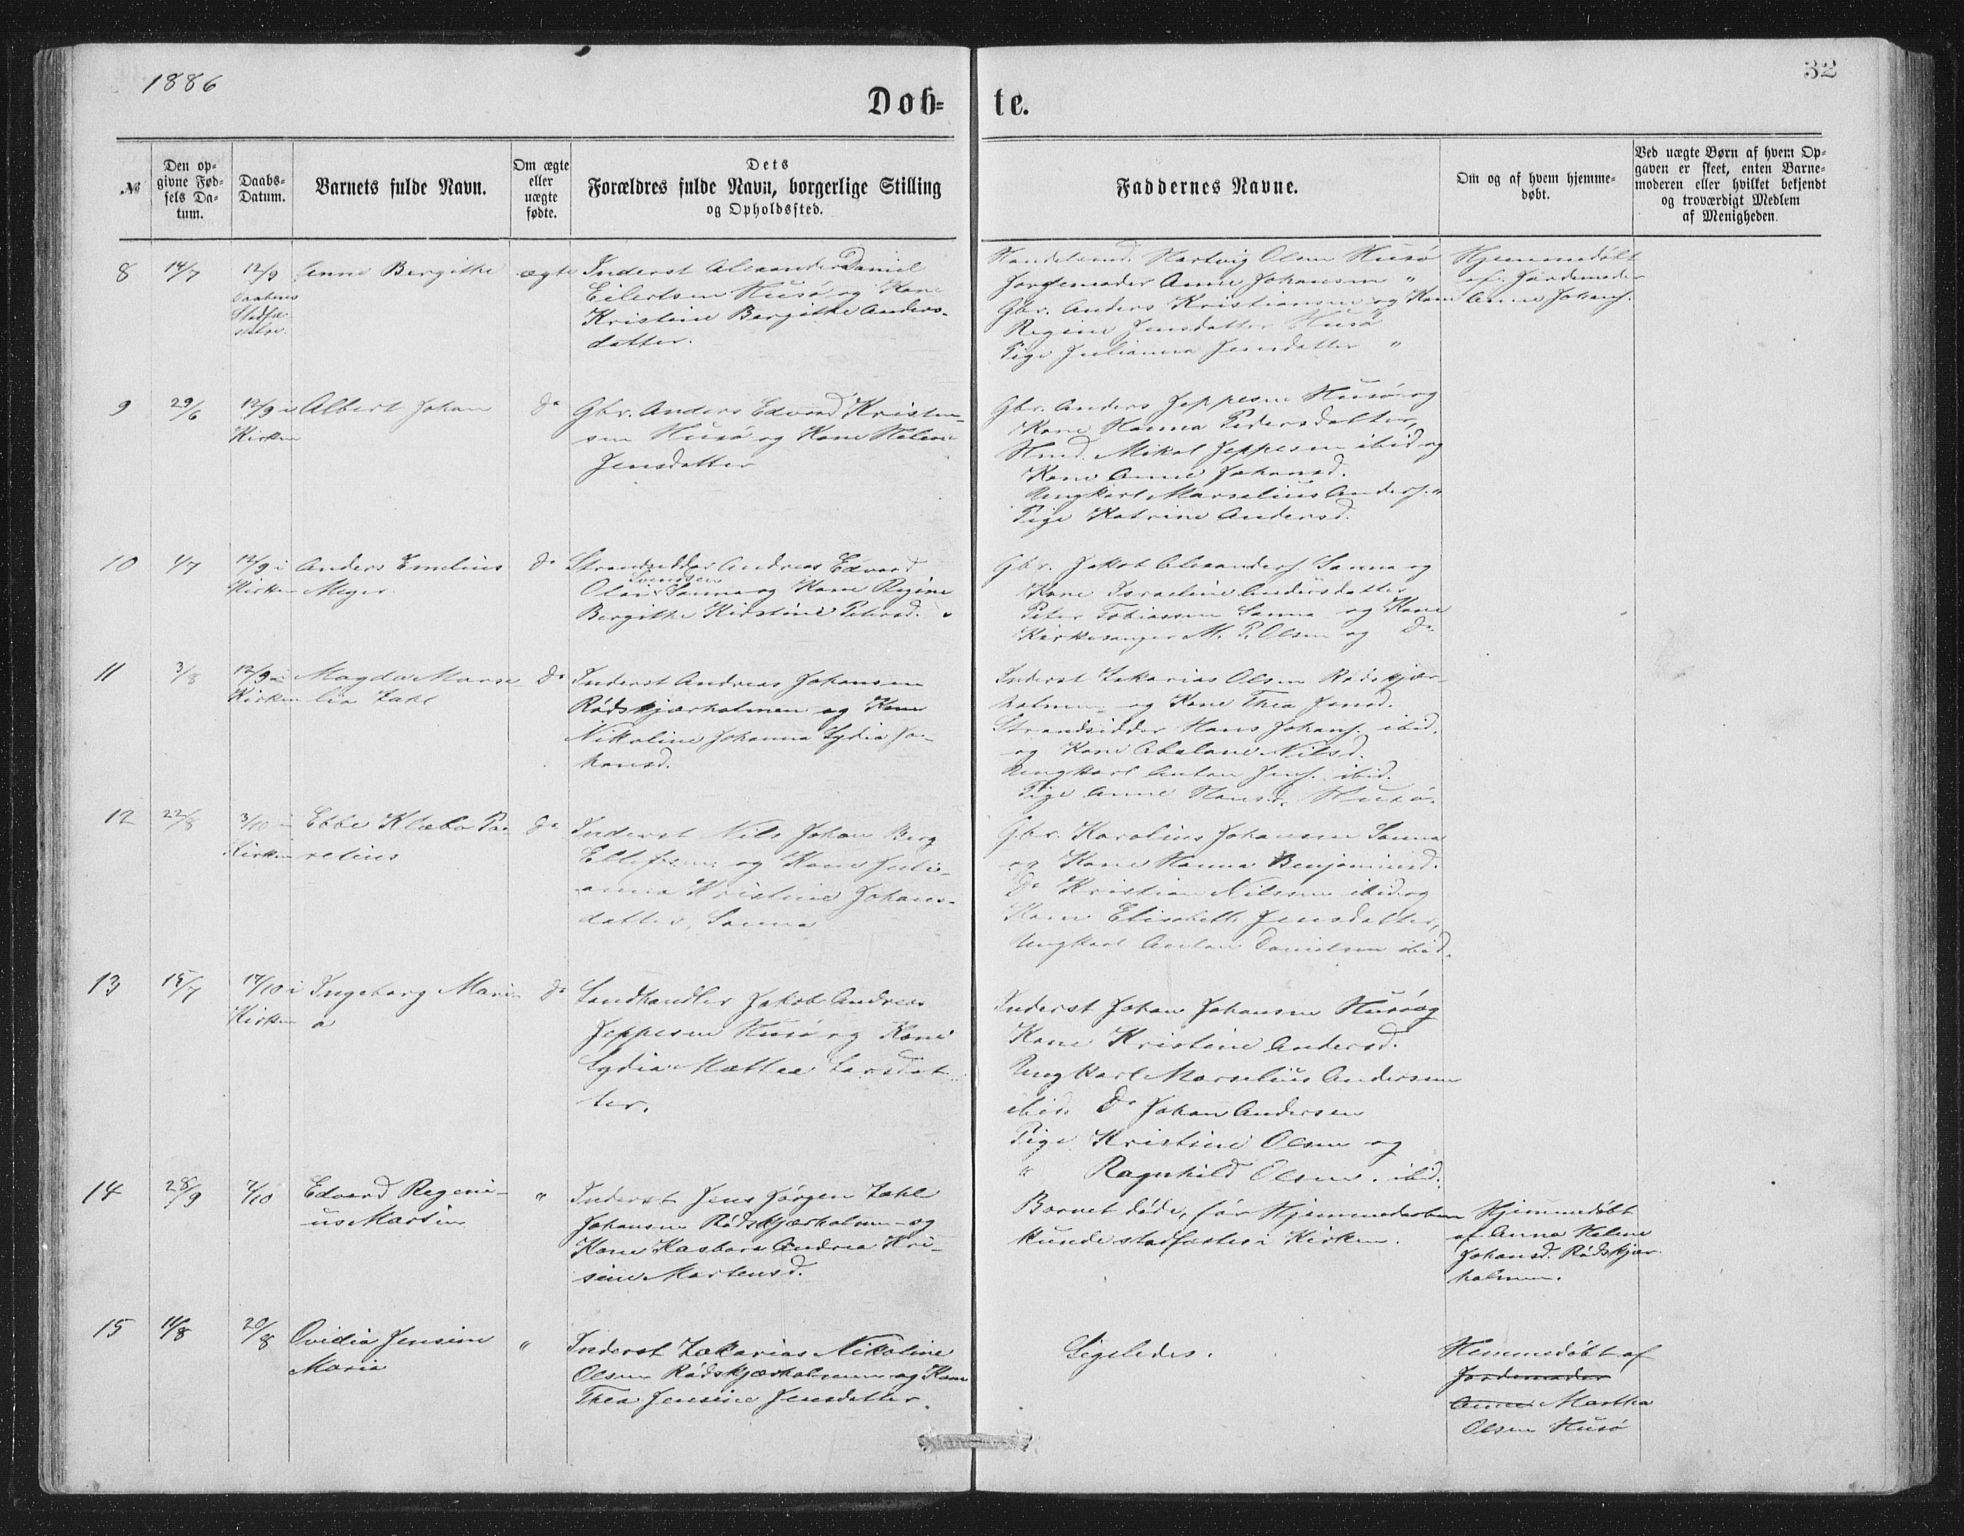 1886
32
Døb-
te.
№
Den op-
givne Fød-
sels Da-
tum.
Daabs-
Datum.
Barnets fulde Navn.
Om ægte
eller
uægte
fødte.
Dets
Forældres fulde Navn, borgerlige Stilling
og Opholdssted.
Faddernes Navne.
Om og af hvem hjemme-
døbt.
Ved uægte Børn af hvem Op-
gaven er skeet, enten Barne-
moderen eller hvilket bekjendt
og troværdigt Medlem
af Menigheden.
8
14/7
12/9
Daabens
Stadfæ-
stelse.
Anne Bergithe
ægte
Inderst Alexander Daniel
Eilertsen Husø og Kone
Kristine Bergithe Anders-
datter.
Hartvig Olsen Husø
Jordemoder Anne Johansen "
Gbr. Anders Kristiansen og Kone
Regine Jensdatter Husø
Pige Julianna Jensdatter "
Hjemmedøbt
af Jordemoder
Anne Johans.
9
29/6
12/9 i
Kirken
Albert Johan
Do
Gbr. Anders Edvard Kristen-
sen Husø og Kone Helene
Jensdatter
Gbr. Anders Jeppesen Husø og
Kone Hanna Pedersdatter,
Hmd. Mikal Jeppesen ibid og
Kone Anne Johansd.
Ungkarl Marselius Anders. "
Pige Katrine Andersd.
10
1/7
12/9 i
Kirken
Anders Emelius
Meyer
Do
Strandsidder Andreas Edvard
Svendsen
Olai Sanna og Kone Regine
Bergithe Kirstine Petersd. "
Gbr. Jakob Alexanders. Sanna og
Kone Israeline Andersdatter
Peter Tobiassen Sanna og Kone
Kirkesanger M. P. Olsen og Do
11
3/8
12/9 i
Kirken
Magda Marse-
lia Zahl
Do
Inderst Andreas Johansen
Rødskjærholmen og Kone
Nikoline Johanna Lydia Jo-
hansd.
Inderst Zakarias Olsen Rødskjær-
holmen og Kone Thea Jensd.
Strandsidder Hans Johans. ibid.
og Kone Abelone Nilsd.
Ungkarl Anton Jens. ibid.
Pige Anne Hansd. Husø.
12
22/8
3/10 i
Kirken
Ebbe Klæbo Pa-
relius
Do
Inderst Nils Johan Berg
Ellefsen og Kone Juli-
anna Kristine Johans-
datter, Sanna
Gbr. Karolius Johansen Sanna
og Kone Hanna Benjaminsd.
Do Kristian Nilsen ibid og
Kone Elisabeth Jensdatter,
Ungkarl Anton Danielsen ibid.
13
15/7
17/10 i
Kirken
Ingeborg Mari-
a
Do
Landhandler Jakob Andreas
Jeppesen Husø og Kone
Lydia Mathea Larsdat-
ter.
Inderst Johan Johansen Husø og
Kone Kristine Andersd.
Ungkarl Marselius Andersen
ibid. Do Johan Andersen
Pige Kristine Olsen og
" Ragnhild Olsen. ibid.
14
28/9
7/10
Edvard Regini-
us Martin
"
Inderst Jens Jørgen Zahl
Johansen Rødskjærholmen og
Kone Kasbara Andrea Kri-
stine Martensd.
Barnet døde, før Hjemmedaaben
kunde stadfæstes i Kirken.
Hjemmedøbt
af Anna Helene
Johansd. Rødskjær-
holmen.
15
11/8
20/8
Ovidia Jensine
Maria
"
Inderst Zakarias Nikoline
Olsen Rødskjærholmen og Kone
Thea Jensine Jensdatter.
Ligeledes.
Hjemmedøbt af
Jordemoder
Anne Martha
Olsen Husø